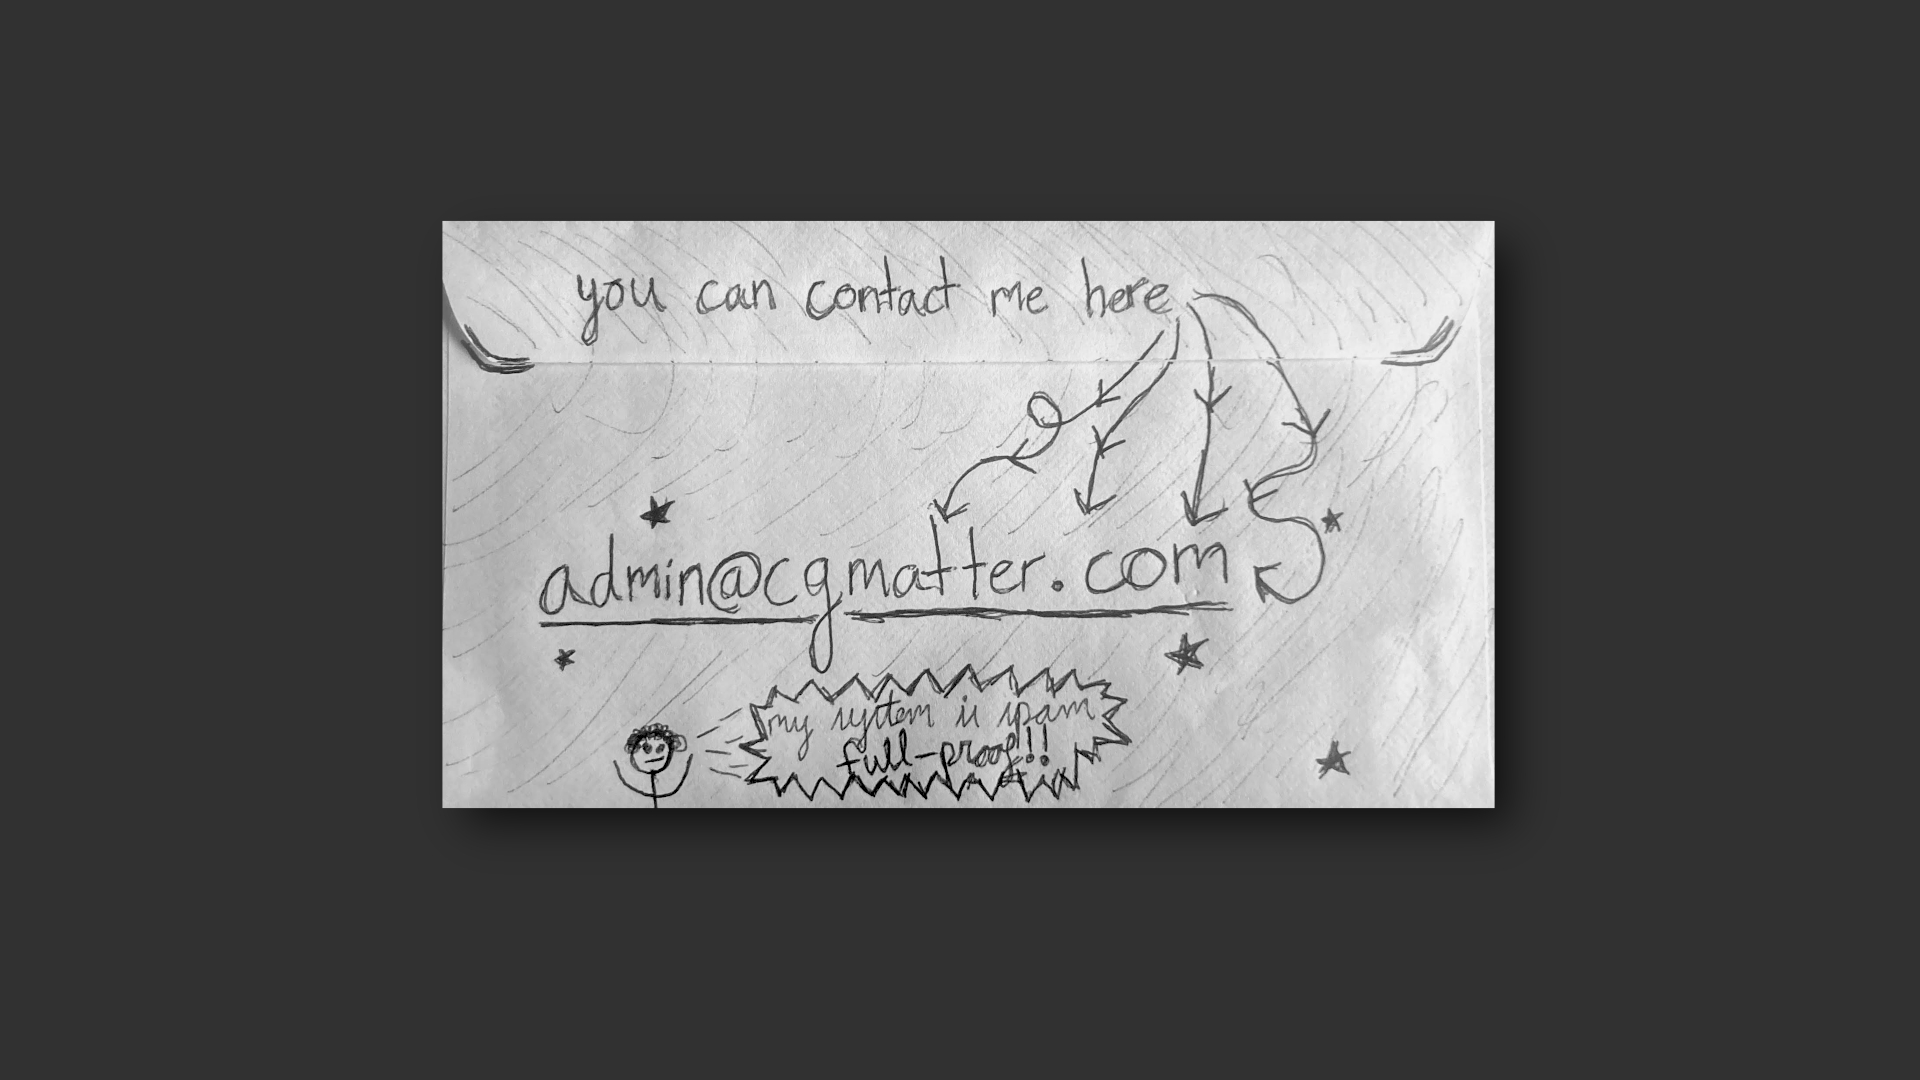 you can contact me here
admin@cgmatter.com
my system is spam
full-proof!!